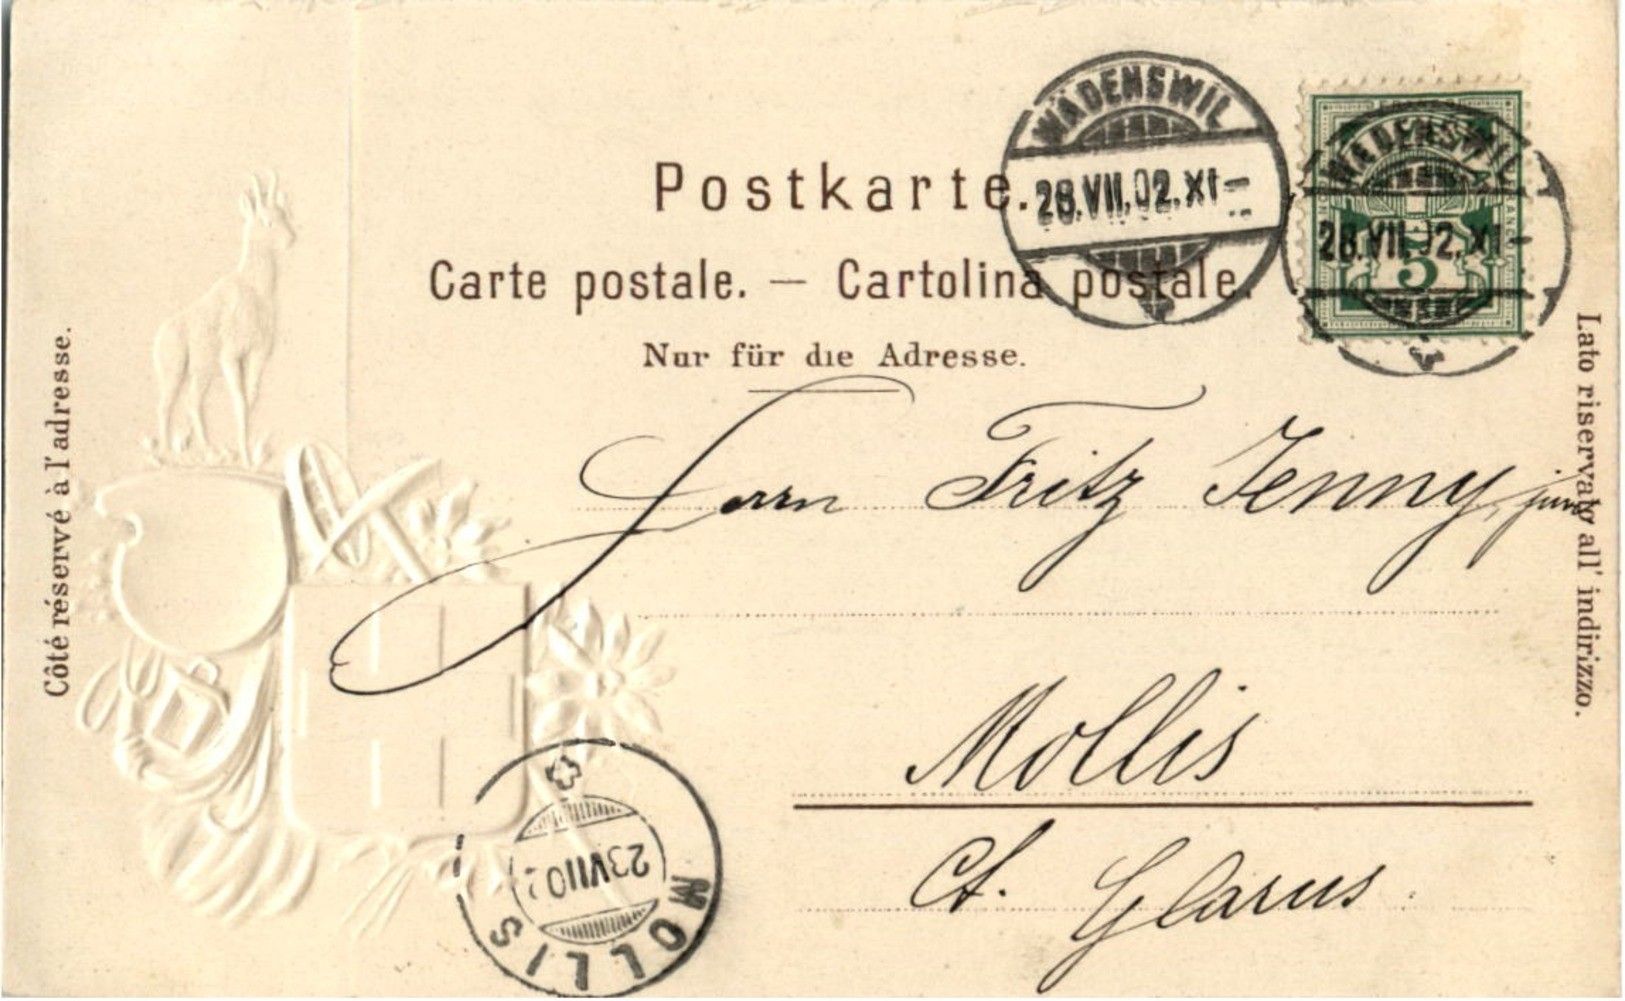 Postkarte.
Carte postale. — Cartolina postale.
Nur für die Adresse.
WÄDENSWIL
28.VII.02.XI-
WÄDENSWIL
28.VII.02.XI-
5
Côté réservé à l'adresse.
Lato riservato all' indirizzo.
Herrn Fritz Jenny, jun.
Mollis
Ct. Glarus.
MOLLIS